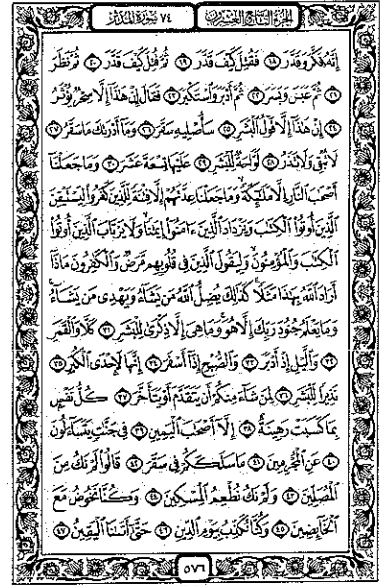 الجزء التاسع والعشرون
٧٤ سورة المدثر
إِنَّهُۥ فَكَّرَ وَقَدَّرَ ١٨ فَقُتِلَ كَيْفَ قَدَّرَ ١٩ ثُمَّ قُتِلَ كَيْفَ قَدَّرَ ٢٠ ثُمَّ نَظَرَ
٢١ ثُمَّ عَبَسَ وَبَسَرَ ٢٢ ثُمَّ أَدْبَرَ وَٱسْتَكْبَرَ ٢٣ فَقَالَ إِنْ هَٰذَآ إِلَّا سِحْرٌ يُؤْثَرُ
٢٤ إِنْ هَٰذَآ إِلَّا قَوْلُ ٱلْبَشَرِ ٢٥ سَأُصْلِيهِ سَقَرَ ٢٦ وَمَآ أَدْرَىٰكَ مَا سَقَرُ ٢٧
لَا تُبْقِى وَلَا تَذَرُ ٢٨ لَوَّاحَةٌ لِّلْبَشَرِ ٢٩ عَلَيْهَا تِسْعَةَ عَشَرَ ٣٠ وَمَا جَعَلْنَآ
أَصْحَٰبَ ٱلنَّارِ إِلَّا مَلَٰٓئِكَةً وَمَا جَعَلْنَا عِدَّتَهُمْ إِلَّا فِتْنَةً لِّلَّذِينَ كَفَرُوا۟ لِيَسْتَيْقِنَ
ٱلَّذِينَ أُوتُوا۟ ٱلْكِتَٰبَ وَيَزْدَادَ ٱلَّذِينَ ءَامَنُوٓا۟ إِيمَٰنًا وَلَا يَرْتَابَ ٱلَّذِينَ أُوتُوا۟
ٱلْكِتَٰبَ وَٱلْمُؤْمِنُونَ وَلِيَقُولَ ٱلَّذِينَ فِى قُلُوبِهِم مَّرَضٌ وَٱلْكَٰفِرُونَ مَاذَآ
أَرَادَ ٱللَّهُ بِهَٰذَا مَثَلًا كَذَٰلِكَ يُضِلُّ ٱللَّهُ مَن يَشَآءُ وَيَهْدِى مَن يَشَآءُ
وَمَا يَعْلَمُ جُنُودَ رَبِّكَ إِلَّا هُوَ وَمَا هِىَ إِلَّا ذِكْرَىٰ لِلْبَشَرِ ٣١ كَلَّا وَٱلْقَمَرِ
٣٢ وَٱلَّيْلِ إِذْ أَدْبَرَ ٣٣ وَٱلصُّبْحِ إِذَآ أَسْفَرَ ٣٤ إِنَّهَا لَإِحْدَى ٱلْكُبَرِ ٣٥
نَذِيرًا لِّلْبَشَرِ ٣٦ لِمَن شَآءَ مِنكُمْ أَن يَتَقَدَّمَ أَوْ يَتَأَخَّرَ ٣٧ كُلُّ نَفْسٍۭ
بِمَا كَسَبَتْ رَهِينَةٌ ٣٨ إِلَّآ أَصْحَٰبَ ٱلْيَمِينِ ٣٩ فِى جَنَّٰتٍ يَتَسَآءَلُونَ
٤٠ عَنِ ٱلْمُجْرِمِينَ ٤١ مَا سَلَكَكُمْ فِى سَقَرَ ٤٢ قَالُوا۟ لَمْ نَكُ مِنَ
ٱلْمُصَلِّينَ ٤٣ وَلَمْ نَكُ نُطْعِمُ ٱلْمِسْكِينَ ٤٤ وَكُنَّا نَخُوضُ مَعَ
ٱلْخَآئِضِينَ ٤٥ وَكُنَّا نُكَذِّبُ بِيَوْمِ ٱلدِّينِ ٤٦ حَتَّىٰٓ أَتَىٰنَا ٱلْيَقِينُ ٤٧
٥٧٦